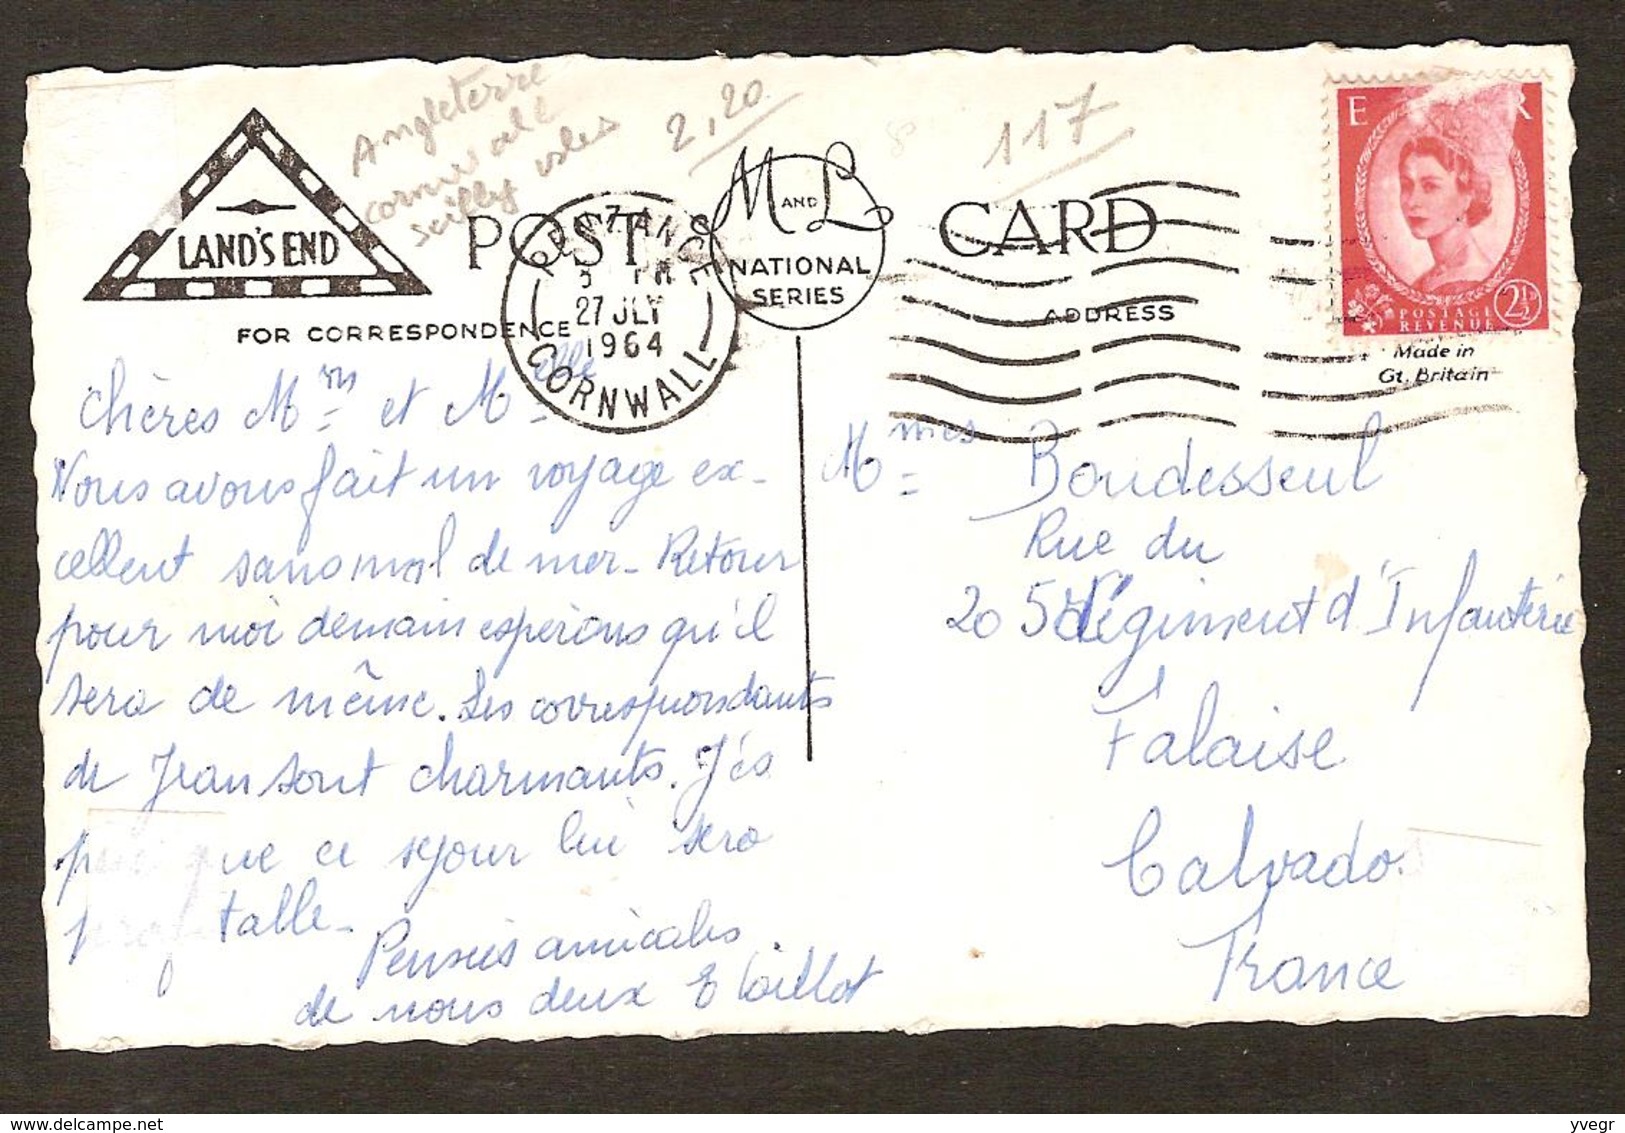 Angleterre
Scilly Isles
2,20
117
LAND'S END
POST CARD
M AND L
NATIONAL
SERIES
PENZANCE
27 JLY
1964
CORNWALL
E R
POSTAGE
REVENUE
2½D
FOR CORRESPONDENCE
ADDRESS
Made in
Gt. Britain
Chères Mm et Melle
Nous avons fait un voyage ex-
cellent sans mal de mer - Retour
pour moi demain espérons qu'il
sera de même. Les correspondants
de Jean sont charmants. J'es
que ce séjour lui sera
table -
Pensées amicales
de nous deux
Mmes Boudesseul
Rue du
205 Régiment d'Infanterie
Falaise
Calvados
France
yvegr